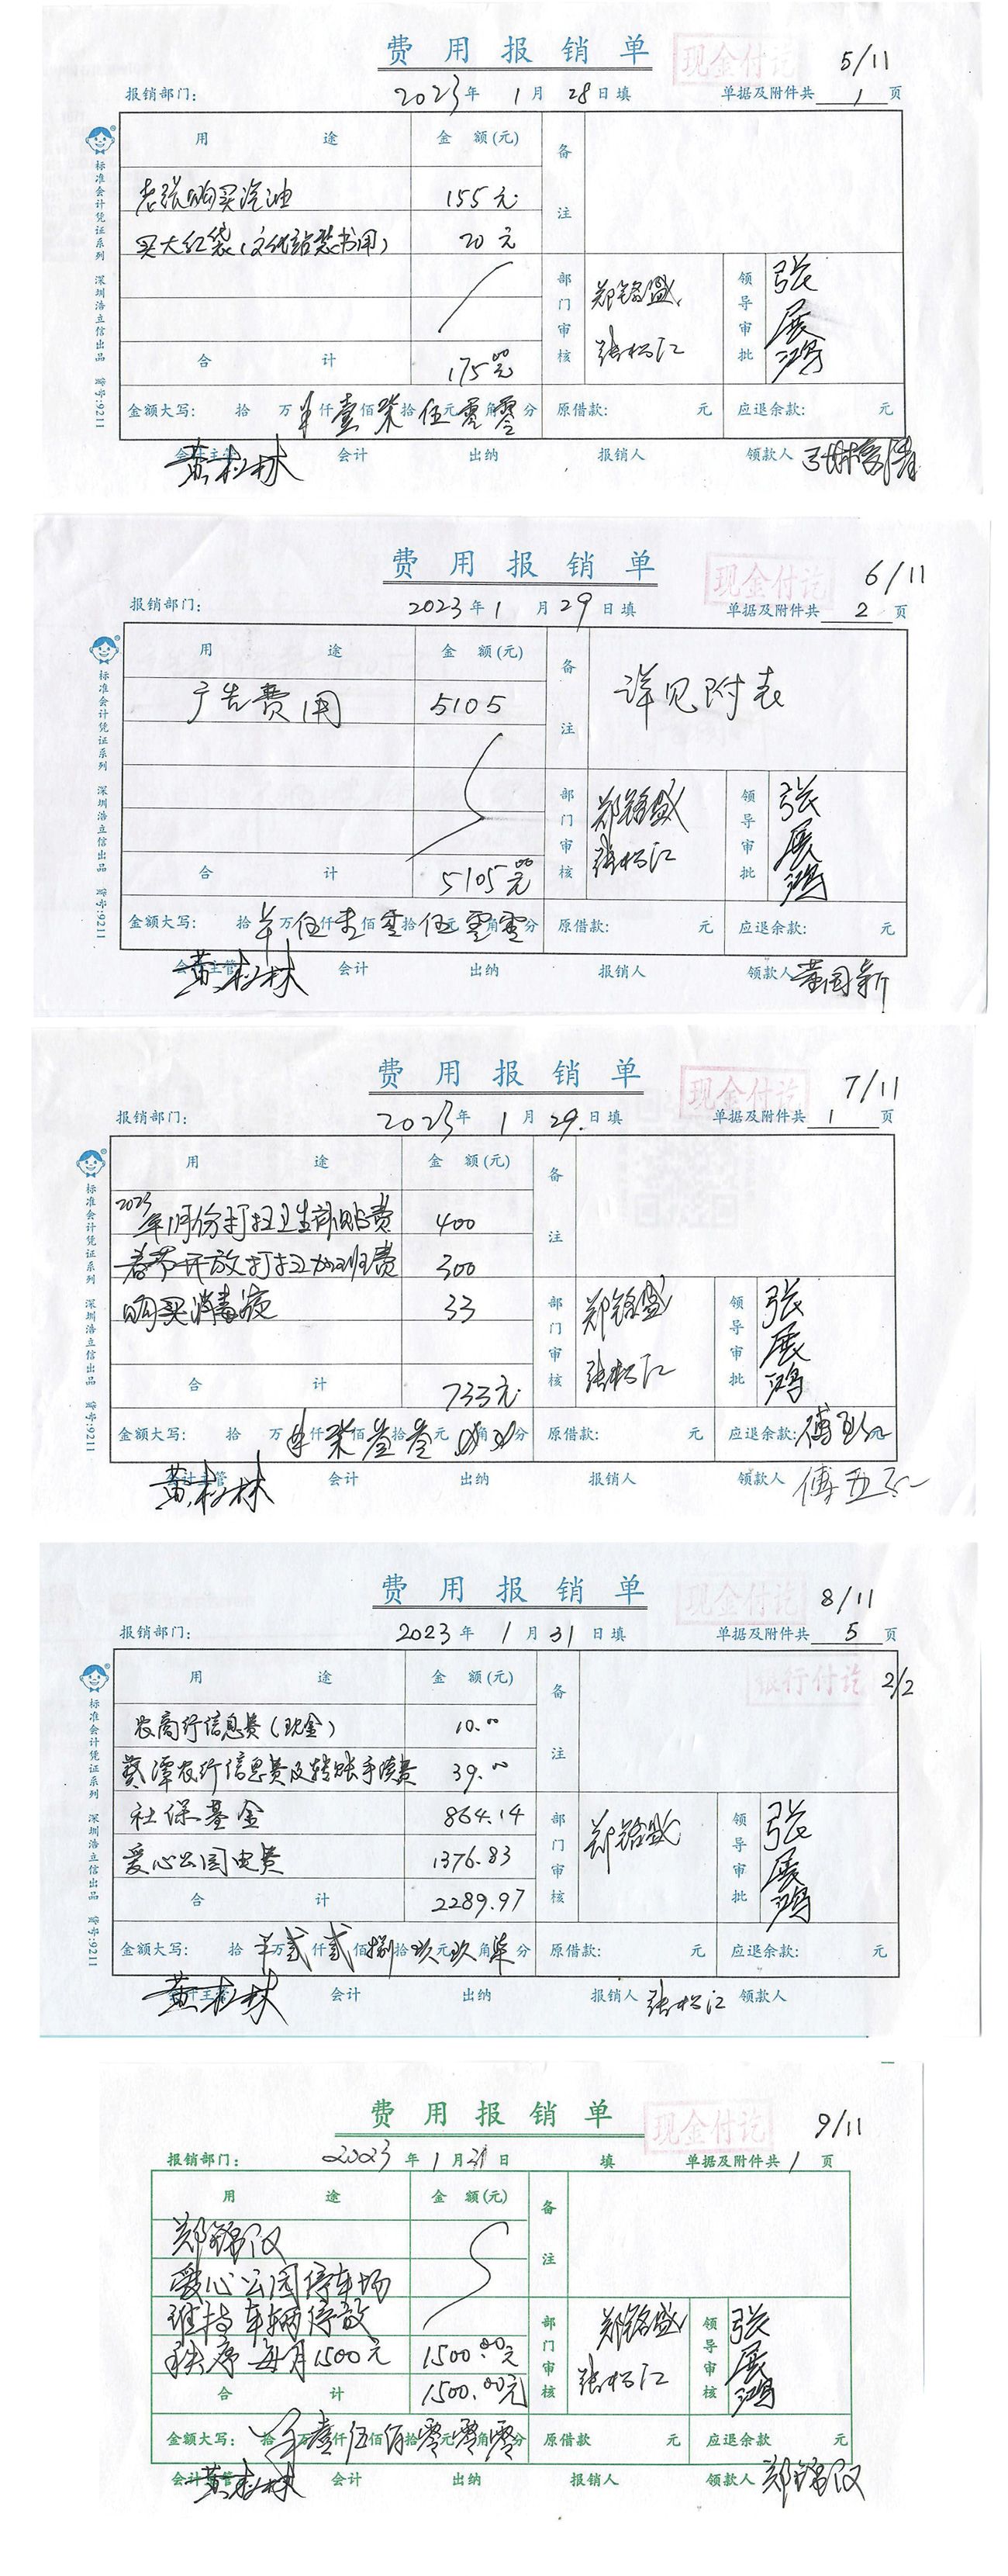 费用报销单
现金付讫
5/11
报销部门: 2023年 1月 28日填 单据及附件共 1 页
用途 金额(元) 备注
老张购买汽油 155元
买大红袋(文化站装书用) 20元
部门审核 郑铭盛 张松江 领导审批 张展鸿
合计 175.00元
金额大写: 拾 万 仟 壹佰 柒拾 伍元 零角 零分 原借款: 元 应退余款: 元
会计主管 黄松林 会计 出纳 报销人 领款人
标准会计凭证系列 深圳浩立信出品 货号:9211
费用报销单
现金付讫
6/11
报销部门: 2023年 1月 29日填 单据及附件共 2 页
用途 金额(元) 备注 详见附表
广告费用 5105
部门审核 郑铭盛 张松江 领导审批 张展鸿
合计 5105.00元
金额大写: 拾 万 伍仟 壹佰 零拾 伍元 零角 零分 原借款: 元 应退余款: 元
会计主管 黄松林 会计 出纳 报销人 领款人
标准会计凭证系列 深圳浩立信出品 货号:9211
费用报销单
现金付讫
7/11
报销部门: 2023年 1月 29.日填 单据及附件共 1 页
用途 金额(元) 备注
2023年1月份打扫卫生补贴费 400
春节开放打扫加班费 300
购买消毒液 33
部门审核 郑铭盛 张松江 领导审批 张展鸿
合计 733元
金额大写: 拾 万 仟 柒佰 叁拾 叁元 角 分 原借款: 元 应退余款: 元
会计主管 黄松林 会计 出纳 报销人 领款人
标准会计凭证系列 深圳浩立信出品 货号:9211
费用报销单
现金付讫
8/11
报销部门: 2023年 1月 31日填 单据及附件共 5 页
银行付讫 2/2
用途 金额(元) 备注
农商行信息费(现金) 10.00
葵潭农行信息费及转账手续费 39.00
社保基金 864.14
爱心公园电费 1376.83
部门审核 郑铭盛 领导审批 张展鸿
合计 2289.97
金额大写: 拾 万 贰仟 贰佰 捌拾 玖元 玖角 柒分 原借款: 元 应退余款: 元
会计主管 黄松林 会计 出纳 报销人 张松江 领款人
标准会计凭证系列 深圳浩立信出品 货号:9211
费用报销单
现金付讫
9/11
报销部门: 2023年 1月 31日 填 单据及附件共 1 页
用途 金额(元) 备注
郑锦汉
爱心公园停车场
维持车辆停放
秩序每月1500元 1500.00元
部门审核 郑铭盛 张松江 领导审核 张展鸿
合计 1500.00元
金额大写: 拾 万 壹仟 伍佰 零拾 元 零角 零分 原借款 元 应退余款 元
会计主管 黄松林 会计 出纳 报销人 领款人 郑锦汉